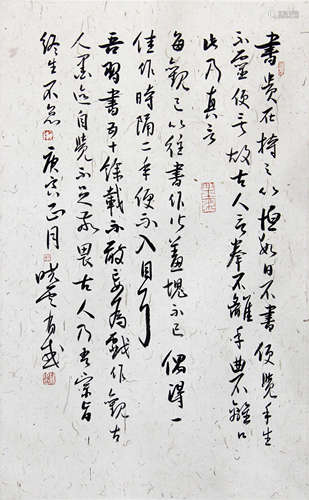 書贵在持之以恒如日不書便覺手生
不靈便言故古人言拳不離手曲不離口
此乃真言
每觀已以往書作必羞愧不已偶得一
佳作時隔二年便不入目了
吾習書五十餘載不敢妄為戲作觀古
人墨迹自覺不足敬畏古人乃吾宗旨
终生不怠 庚寅正月